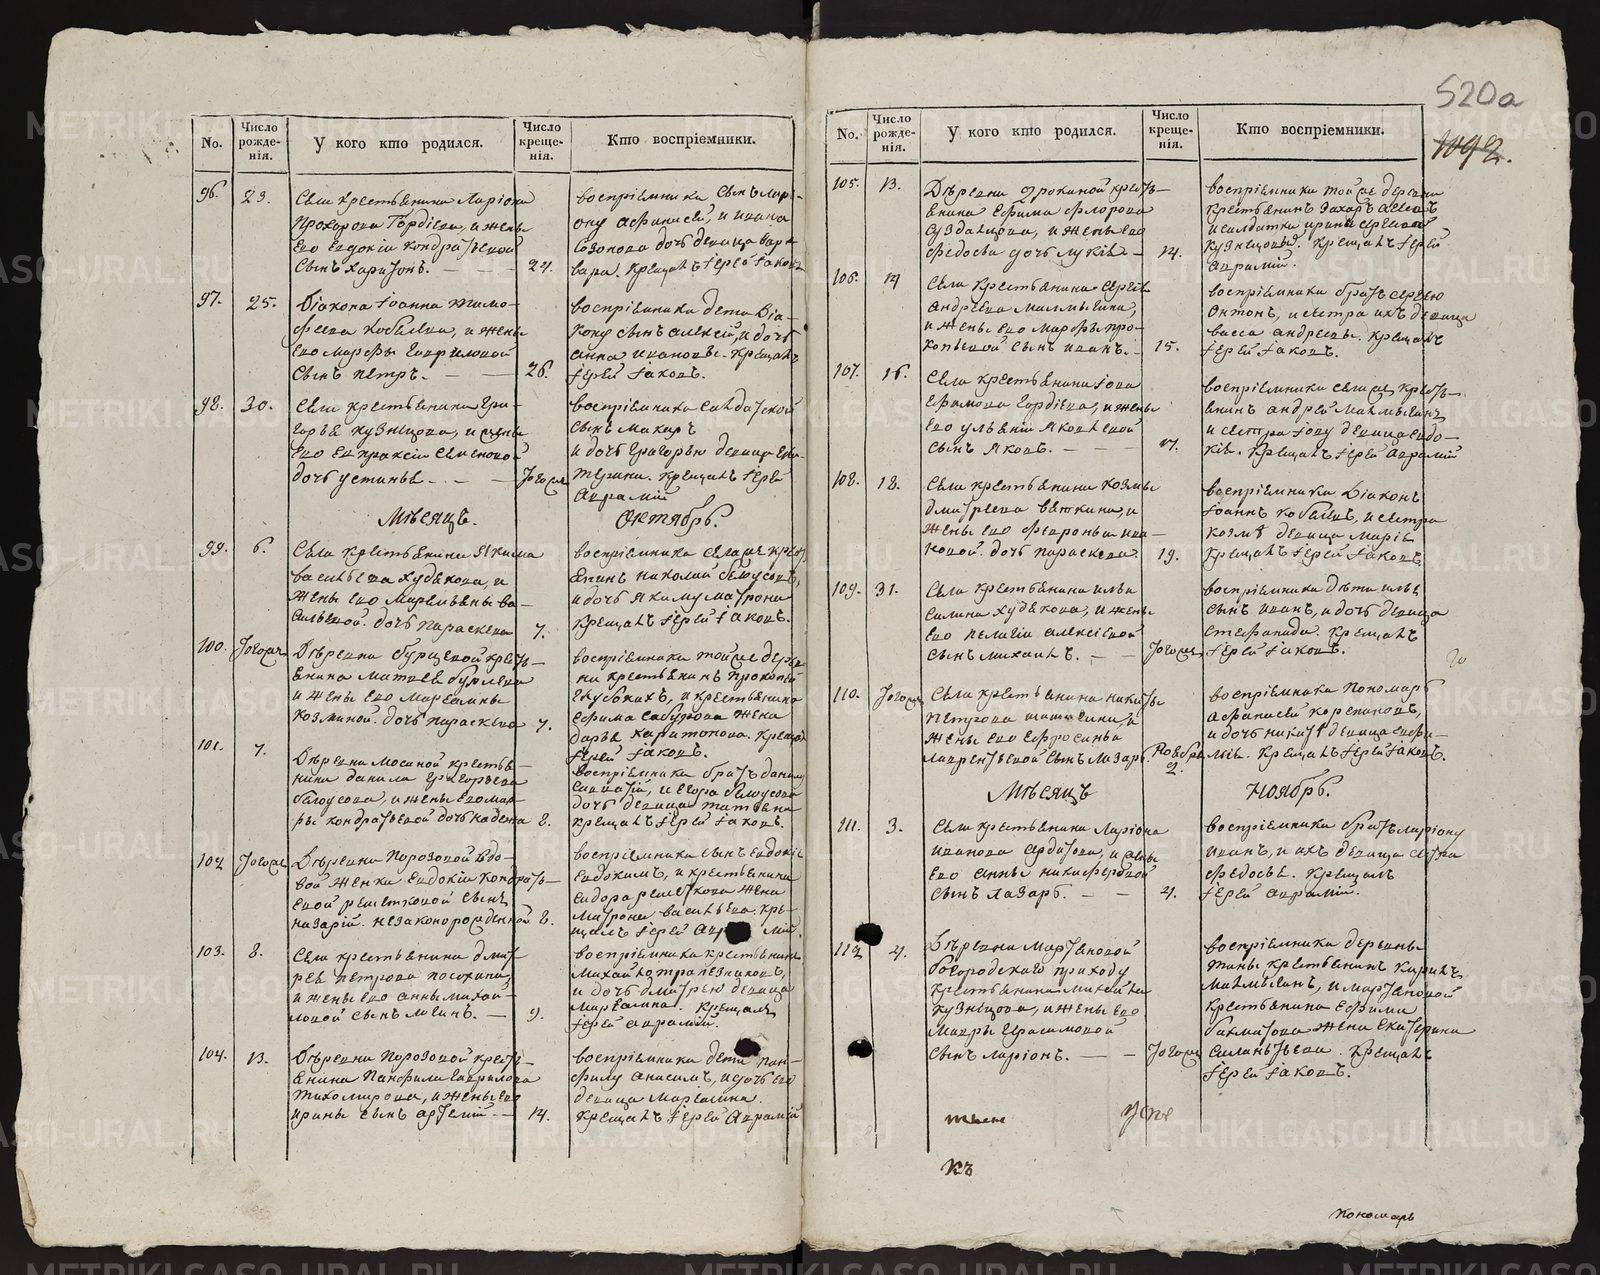 520а
1092.
No.
Число рожде-нія.
У кого кто родился.
Число креще-нія.
Кто воспріемники.
96.
23.
Села крестьянина Ларіона
Прохорова Гордіева, и жены
Его Евдокіи Кондратьевой
сынъ Харитонъ.
24.
воспріемники сынъ Лари-
ону Афанасей, и Ивана
Созонова дочь девица Вар-
вара. Крещалъ Іерей Іаковъ
97.
25.
Діакона Іоанна Тимо-
феева Кобылева, и жены
Его Марфы Гавриловой
сынъ Петръ.
26.
воспріемники дети діа-
кону сынъ Алексѣй, и дочь
Анна Ивановы. Крещалъ
Іерей Іаковъ.
98.
30.
Села крестьянина Гри-
горья Кузнецова, и жены
Его Евпраксіи Семеновой
дочь Устинья.
Тогожъ
воспріемники Салдатской
сынъ Макаръ
и дочь Григорью девица Ека-
терина. Крещалъ Іерей
Авраамій
Мѣсяцъ.
Октябрь.
99.
6.
Села крестьянина Якима
Васильева Худякова, и
жены Его Маремьяны Ва-
сильевой. дочь Параскева
7.
воспріемники села крестьянинъ Николай Белоусовъ,
и дочь Якиму Матрона
Крещалъ Іерей Іаковъ.
100.
Тогожъ
Деревни Бурцевой кресть-
янина Матвея Бурлева
и жены Его Маремьяны
Козминой. дочь Параскева
7.
воспріемники тойже дерев-
ни крестьянинъ Прокопей
и крестьянина
Ефима Сабурова жена
Дарья Харитонова. Крещалъ
Іерей Іаковъ.
101.
7.
Деревни Мосиной крестья-
нина Данила Григорьева
Белоусова, и жены Его Мар-
ѳы Кондратьевой дочь Надежа
8.
воспріемники братъ Данилу
Савватій, и Егора Белоусова
дочь девица Татьяна
Крещалъ Іерей Іаковъ.
102
Тогожъ
Деревни Порозовой вдо-
вой женки Евдокіи Кондрать-
евой Решетковой сынъ
Назарій. незаконорожденной
8.
воспріемники сынъ Евдокіи
Евдокимъ, и крестьянина
Сидора Решеткова жена
Матрона Васильева. Кре-
щалъ Іерей Авраамій.
103.
8.
Села крестьянина Дмит-
рея Петрова Посохина,
и жены Его Анны Михай-
ловой сынъ Логинъ.
9.
воспріемники крестьянинъ
Михайло Трапезниковъ,
и дочь Дмитрею девица
Маремьяна. Крещалъ
Іерей Авраамій.
104.
13.
Деревни Порозовой кресть-
янина Панфила Гаврилова
Тихомирова, и жены Его
Ирины сынъ Артемій
14.
воспріемники дети Пан-
филу Анисимъ, и дочь Его
девица Маремьяна.
Крещалъ Іерей Авраамій
No.
Число рожде-нія.
У кого кто родился.
Число креще-нія.
Кто воспріемники.
105.
13.
Деревни крес-
янина Ефима Флорова
Суздальцова, и жены Его
Федосьи дочь Лукія
14.
воспріемники тойже деревни
крестьянинъ Захаръ
и салдатка Ирина
Кузнецовы. Крещалъ Іерей
Авраамій.
106.
14
Села крестьянина Сергея
Андреева Малмыгина,
и жены Его Марфы Про-
копьевой сынъ Иванъ.
15.
воспріемники братъ Сергею
Антонъ, и сестра ихъ девица
Васса Андреевы. Крещалъ
Іерей Іаковъ.
107.
16.
Села крестьянина Іова
Ефимова Гордіева, и жены
Его Ульяніи Яковлевой
сынъ Яковъ.
17.
воспріемники села кресть-
янинъ Андрей Малмыгинъ
и сестра Іову девица Евдо-
кія. Крещалъ Іерей Авраамій
108.
18.
Села крестьянина Козмы
Дмитреева Вяткина, и
жены Его Февроньи Ива-
новой. дочь Параскева.
19.
воспріемники Діаконъ
Іоаннъ Кобылевъ, и сестра
Козмѣ девица Марія
Крещалъ Іерей Іаковъ
109.
31.
Села крестьянина Ильи
Силина Худякова, и жены
Его Пелагіи Алексіевой
сынъ Михаилъ.
Тогожъ
воспріемники дѣти Ильѣ
сынъ Иванъ, и дочь девица
Степанида. Крещалъ
Іерей Іаковъ.
110.
Тогожъ
Села крестьянина Никиты
Петрова и
жены Его Ефросиньи
Лаврентьевой сынъ Лазарь.
Ноября 2.
воспріемники пономарь
Афанасей Корепановъ,
и дочь Никитѣ девица Евфи-
мія. Крещалъ Іерей Іаковъ.
Мѣсяцъ
Ноябрь.
111.
3.
Села крестьянина Ларіона
Иванова Ардатова, и жены
Его Анны Никифоровой
сынъ Лазарь.
4.
воспріемники братъ Ларіону
Иванъ, и ихъ девица сестра
Федосья. Крещалъ
Іерей Авраамій.
112
4.
Деревни Мартьяновой
Богородскаго приходу
крестьянина Михайла
Кузнецова, и жены Его
Мавры Герасимовой
сынъ Ларіонъ.
Тогожъ
воспріемники деревни
крестьянинъ Кирилъ
Малмыгинъ, и Мартьяновой
крестьянина Ефима
Бахматова жена Екатерина
Силантьева. Крещалъ
Іерей Іаковъ.
къ
Пономарь
METRIKI.GASO-URAL.RU